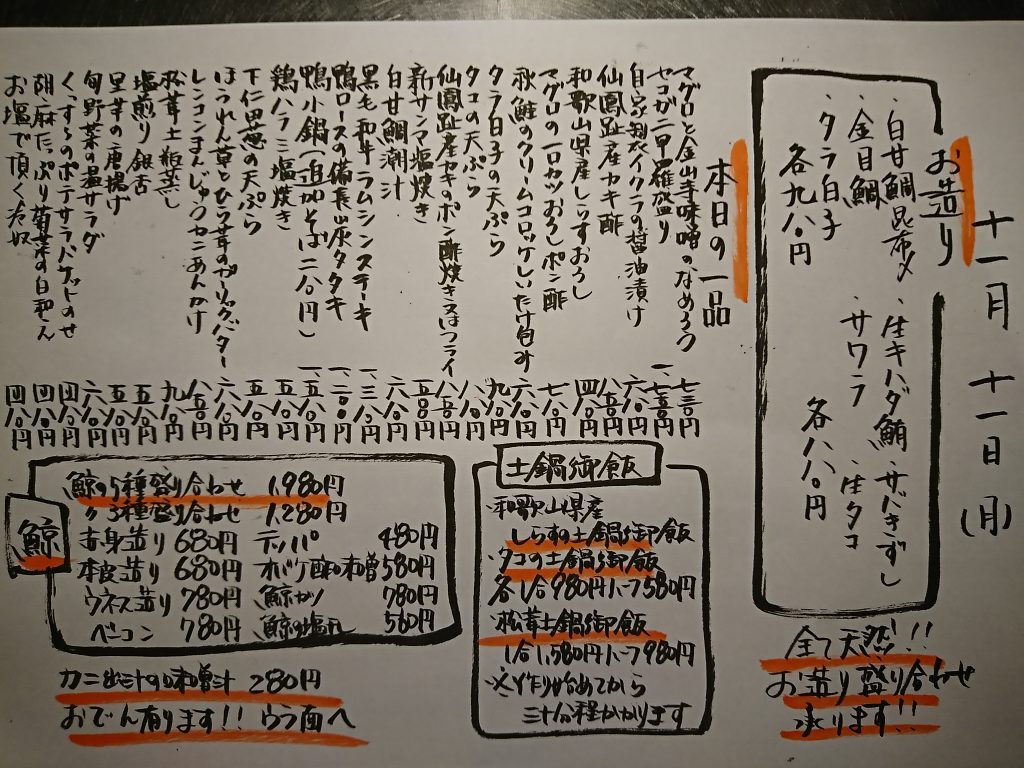 十一月 十一日(月)
お造り
・白甘鯛昆布〆
・金目鯛
・タラ白子
各九八〇円
・生キハダ鮪・サバきずし
・サワラ ・生タコ
各八八〇円
全て天然!!
お造り盛り合わせ
承ります!!
本日の一品
マグロと金山寺味噌のなめろう 七三〇円
セコガニ甲羅盛り 一、七五〇円
自家製イクラの醤油漬け 六八〇円
仙鳳趾産カキ酢 八五〇円
和歌山県産しらすおろし 四八〇円
マグロの一口カツおろしポン酢 七八〇円
秋鮭のクリームコロッケしいたけ包み 六八〇円
タラ白子の天ぷら 九八〇円
タコの天ぷら 七八〇円
仙鳳趾産カキのポン酢焼き又はフライ 八五〇円
新サンマ塩焼き 七五〇円
白甘鯛潮汁 六八〇円
黒毛和牛ラムシンステーキ 一、三八〇円
鴨ロースの備長炭タタキ 一、二〇〇円
鴨小鍋(追加そば二八〇円) 一、五八〇円
鶏ハラミ塩焼き 五八〇円
下仁田葱の天ぷら 五八〇円
ほうれん草とひら茸のガーリックバター 六八〇円
レンコンまんじゅうカニあんかけ 八五〇円
松茸土瓶蒸し 九八〇円
塩煎り銀杏 五五〇円
里芋の唐揚げ 五八〇円
旬野菜の温サラダ 六八〇円
くずし のポテサラバケットのせ 四八〇円
胡麻たっぷり菊菜の白和え 四八〇円
お塩で頂く冷奴 四八〇円
土鍋御飯
・和歌山県産
しらすの土鍋御飯
・タコの土鍋御飯
各1合980円ハーフ580円
・松茸土鍋御飯
1合1,580円ハーフ980円
※作り始めてから
三十分程かかります
鯨
鯨の5種盛り合わせ 1,980円
〃3種盛り合わせ 1,280円
赤身造り 680円 テッパ 480円
本皮造り 680円 オバケ酢味噌 580円
ウネス造り 780円 鯨カツ 780円
ベーコン 780円 鯨の塩 560円
カニ出汁の味噌汁 280円
おでん有ります!! ウラ面へ